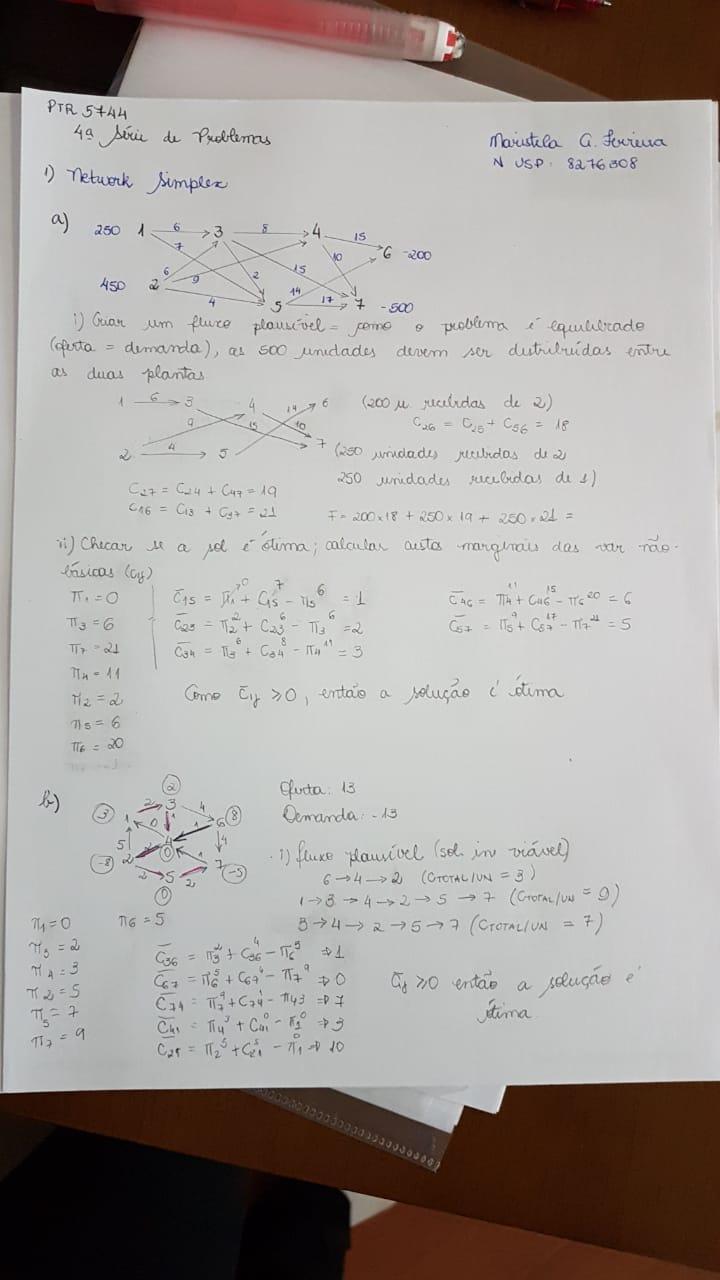 PTR 5744
4ª Série de Problemas
Maristela G. Ferreira
N USP: 8276308
1) Network Simplex
a) 250 1 6 3 8 4 15
7 6 -200
6 9 2 15 10
450 2 14
4 5 17 7 -500
i) Criar um fluxo plausível = como o problema é equilibrado
(oferta = demanda), as 500 unidades devem ser distribuídas entre
as duas plantas
1 6 3 4 14 6 (200 u. recebidas de 2)
9 15 10 C26 = C25 + C56 = 18
2 4 5 7 (250 unidades recebidas de 2
250 unidades recebidas de 1)
C27 = C24 + C47 = 19
C16 = C13 + C37 = 21 F = 200x18 + 250x19 + 250x21 =
ii) Checar se a sol é ótima; calcular custos marginais das var não-
básicas (Cij)
π1 = 0
π3 = 6
π7 = 21
π4 = 11
π2 = 2
π5 = 6
π6 = 20
C̅15 = π1 0 + C15 7 - π5 6 = 1
C̅23 = π2 2 + C23 6 - π3 6 = 2
C̅34 = π3 6 + C34 8 - π4 11 = 3
C̅46 = π4 11 + C46 15 - π6 20 = 6
C̅57 = π5 9 + C57 17 - π7 21 = 5
Como C̅ij ≥ 0, então a solução é ótima
b)
2
3 1 2 3 4
0 1 1 6 8
5 4 4
-8 2 2 0 1 7 -5
2 5 2
0
Oferta: 13
Demanda: -13
i) fluxo plausível (sol. in viável)
6 → 4 → 2 (CTOTAL/UN = 3)
1 → 3 → 4 → 2 → 5 → 7 (CTOTAL/UN = 9)
3 → 4 → 2 → 5 → 7 (CTOTAL/UN = 7)
π1 = 0 π6 = 5
π3 = 2
π4 = 3
π2 = 5
π5 = 7
π7 = 9
C̅36 = π3 2 + C36 4 - π6 5 ⇒ 1
C̅67 = π6 5 + C67 4 - π7 9 ⇒ 0
C̅74 = π7 9 + C74 1 - π4 3 ⇒ 7
C̅41 = π4 3 + C41 0 - π1 0 ⇒ 3
C̅21 = π2 5 + C21 5 - π1 0 ⇒ 10
C̅ij ≥ 0 então a solução é
ótima.